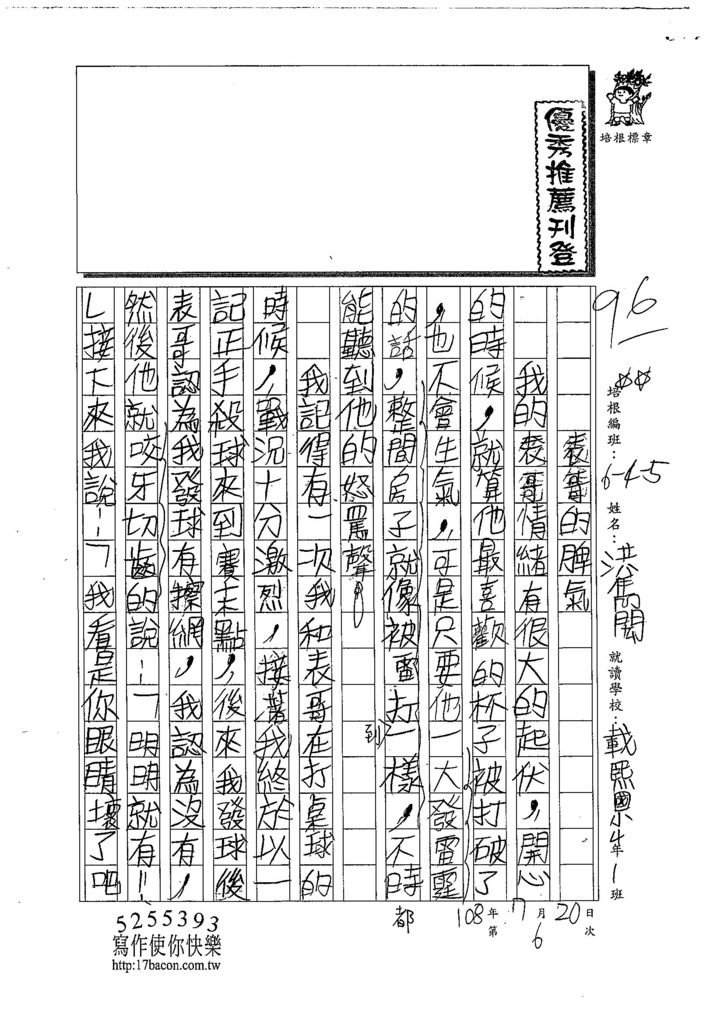 優秀推薦刊登
培根標章
96
培根編班：6-4-5
姓名：洪
就讀學校：載熙國小4年1班
表哥的脾氣
我的表哥情緒有很大的起伏，開心
的時候，就算他最喜歡的杯子被打破了
，也不會生氣，可是只要他一大發雷霆
的話，整間房子就像被雷打到一樣，不時都
能聽到他的怒罵聲。
我記得有一次我和表哥在打桌球的
時候，戰況十分激烈，接著我終於以一
記正手殺球來到賽末點，後來我發球後
表哥認為我發球有擦網，我認為沒有，
然後他就咬牙切齒的說：「明明就有！
」接下來我說：「我看是你眼睛壞了吧
108年7月20日
第6次
5255393
寫作使你快樂
http:17bacon.com.tw